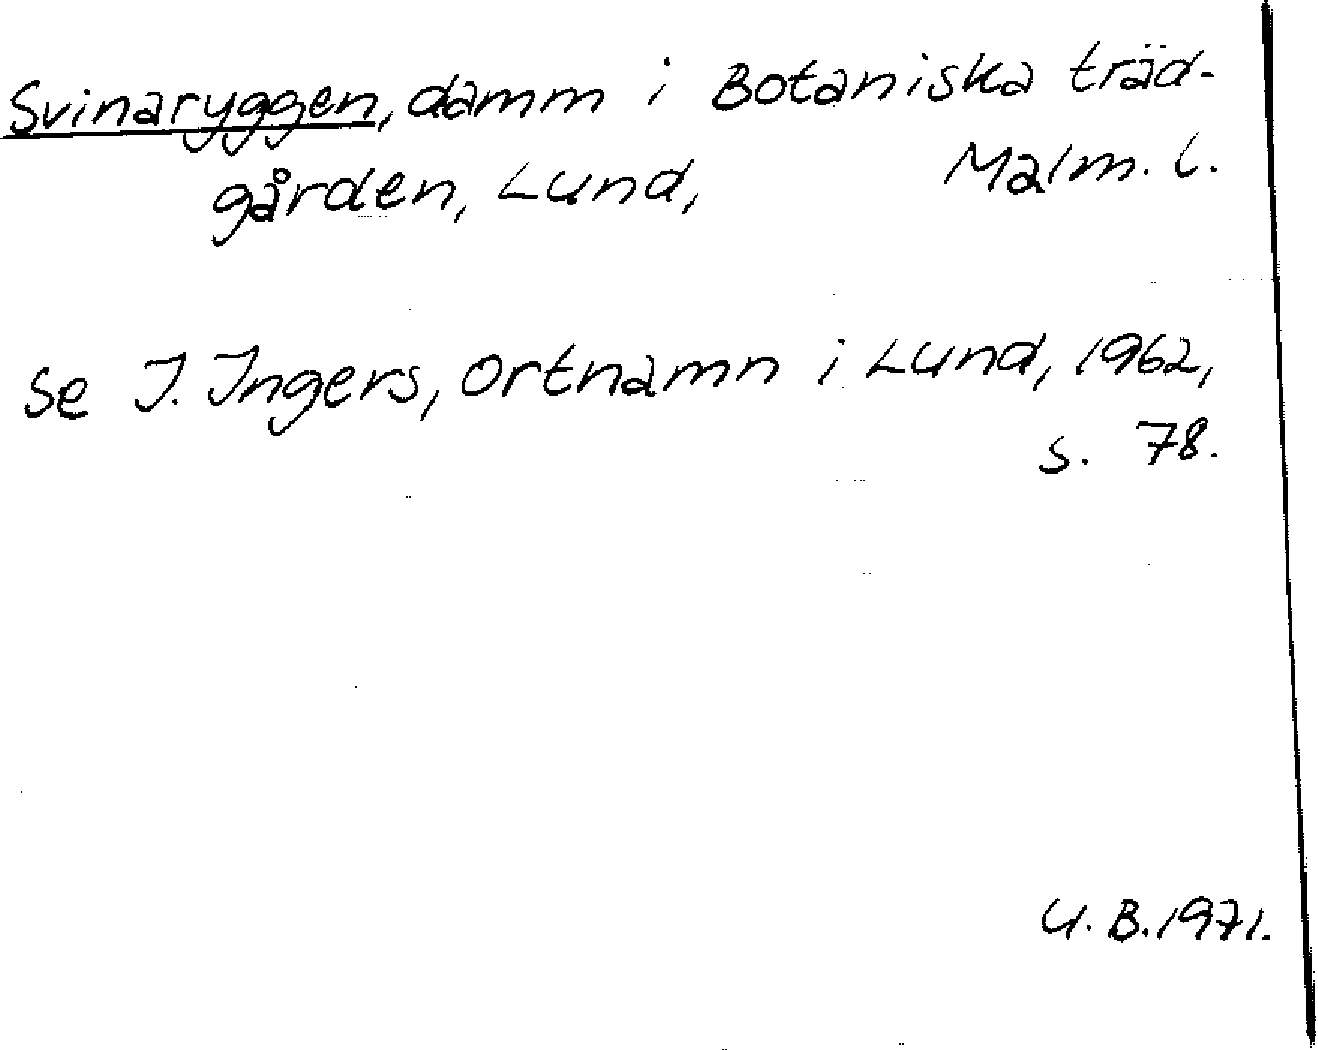 Svinaryggen, damm i Botaniska träd-
gården, Lund, Malm. l.
Se I. Ingers, Ortnamn i Lund, 1962,
s. 78.
U.B. 1971.